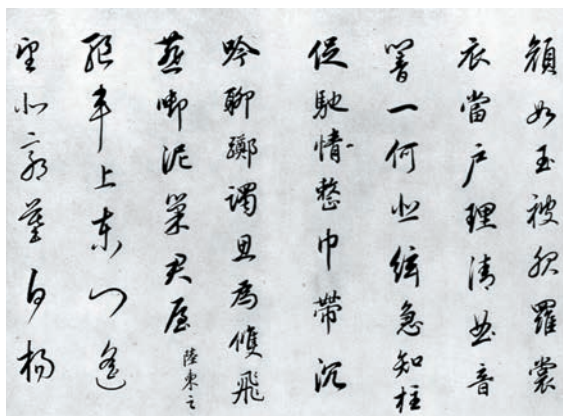 顏如玉被服羅裳
衣當户理清曲音
響一何悲絃急知柱
促馳情整巾帶沉
吟聊躑躅思為雙飛
燕啣泥巢君屋 陸柬之
驅車上東門遙
望北郭墓白楊